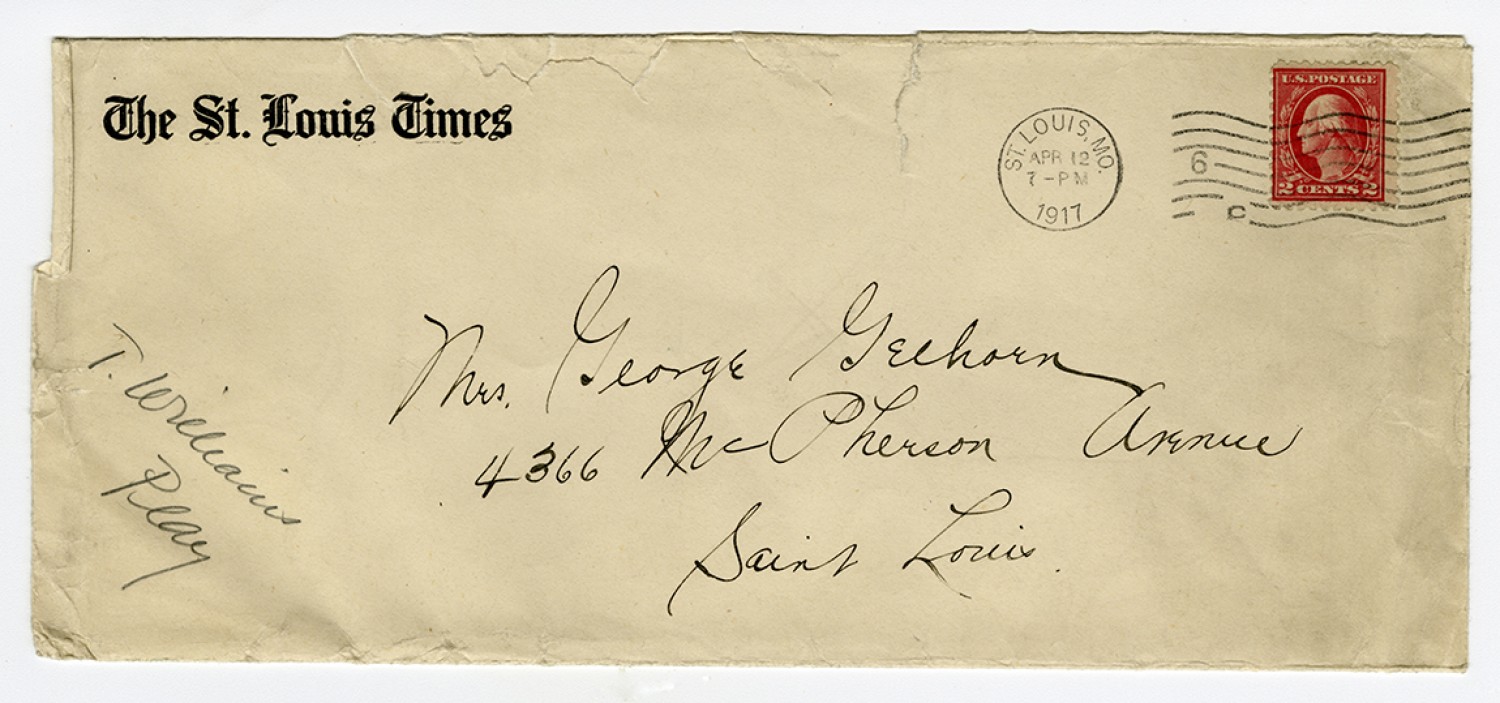 The St. Louis Times
ST. LOUIS, MO.
APR 12
7-PM
1917
6
C
U.S. POSTAGE
2 CENTS 2
Mrs. George Gelhorn
4366 McPherson Avenue
Saint Louis.
T. Williams
Play